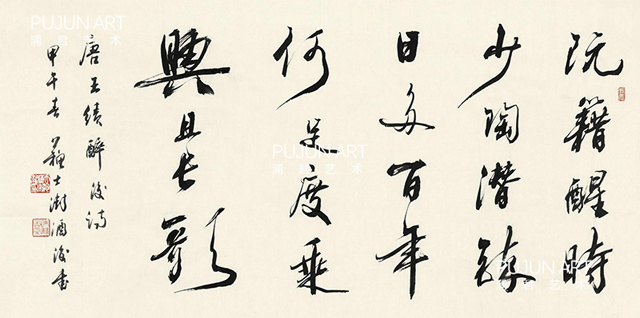 阮籍醒時
少陶潛醉
日多百年
何足度乘
興且長歌
唐王績醉後詩
甲午春蘇士澍酒後書
PUJUN ART
艺术
PUJUN ART
艺术
PUJUN ART
艺术
PUJUN ART
艺术